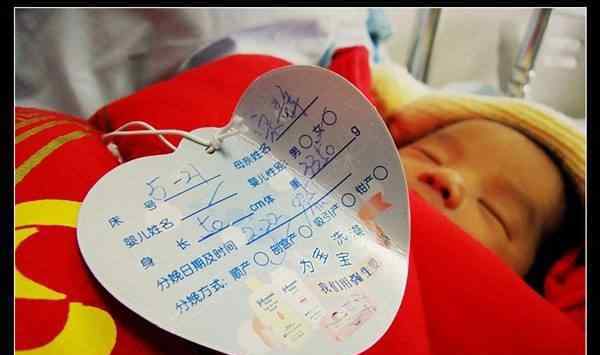 床 号 5-21 母亲姓名
婴儿姓名 婴儿性别：男 女
身 长 50 cm 体 重 g
分娩日期及时间 2.22
分娩方式：顺产 剖宫产 吸引产 钳产
为多宝洗澡
我们用强生婴